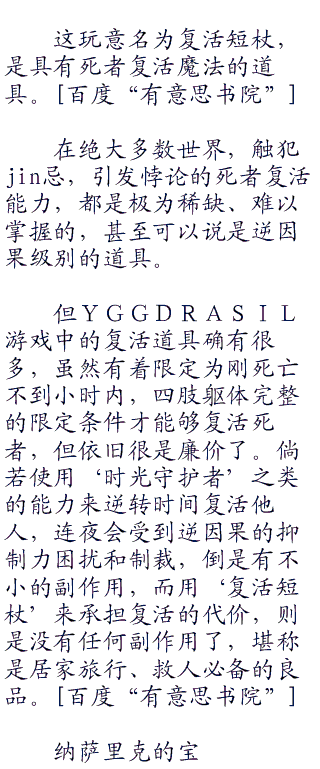 这玩意名为复活短杖，
是具有死者复活魔法的道
具。[百度“有意思书院”]
在绝大多数世界，触犯
jin忌，引发悖论的死者复活
能力，都是极为稀缺、难以
掌握的，甚至可以说是逆因
果级别的道具。
但ＹＧＧＤＲＡＳＩＬ
游戏中的复活道具确有很
多，虽然有着限定为刚死亡
不到小时内，四肢躯体完整
的限定条件才能够复活死
者，但依旧很是廉价了。倘
若使用‘时光守护者’之类
的能力来逆转时间复活他
人，连夜会受到逆因果的抑
制力困扰和制裁，倒是有不
小的副作用，而用‘复活短
杖’来承担复活的代价，则
是没有任何副作用了，堪称
是居家旅行、救人必备的良
品。[百度“有意思书院”]
纳萨里克的宝